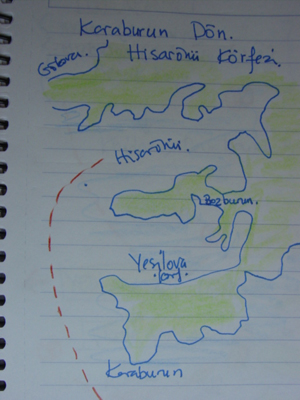 Karaburun Dön.
Hisarönü Körfezi
Gökova.
Hisarönü.
Bozburun.
Yeşilova
Karaburun